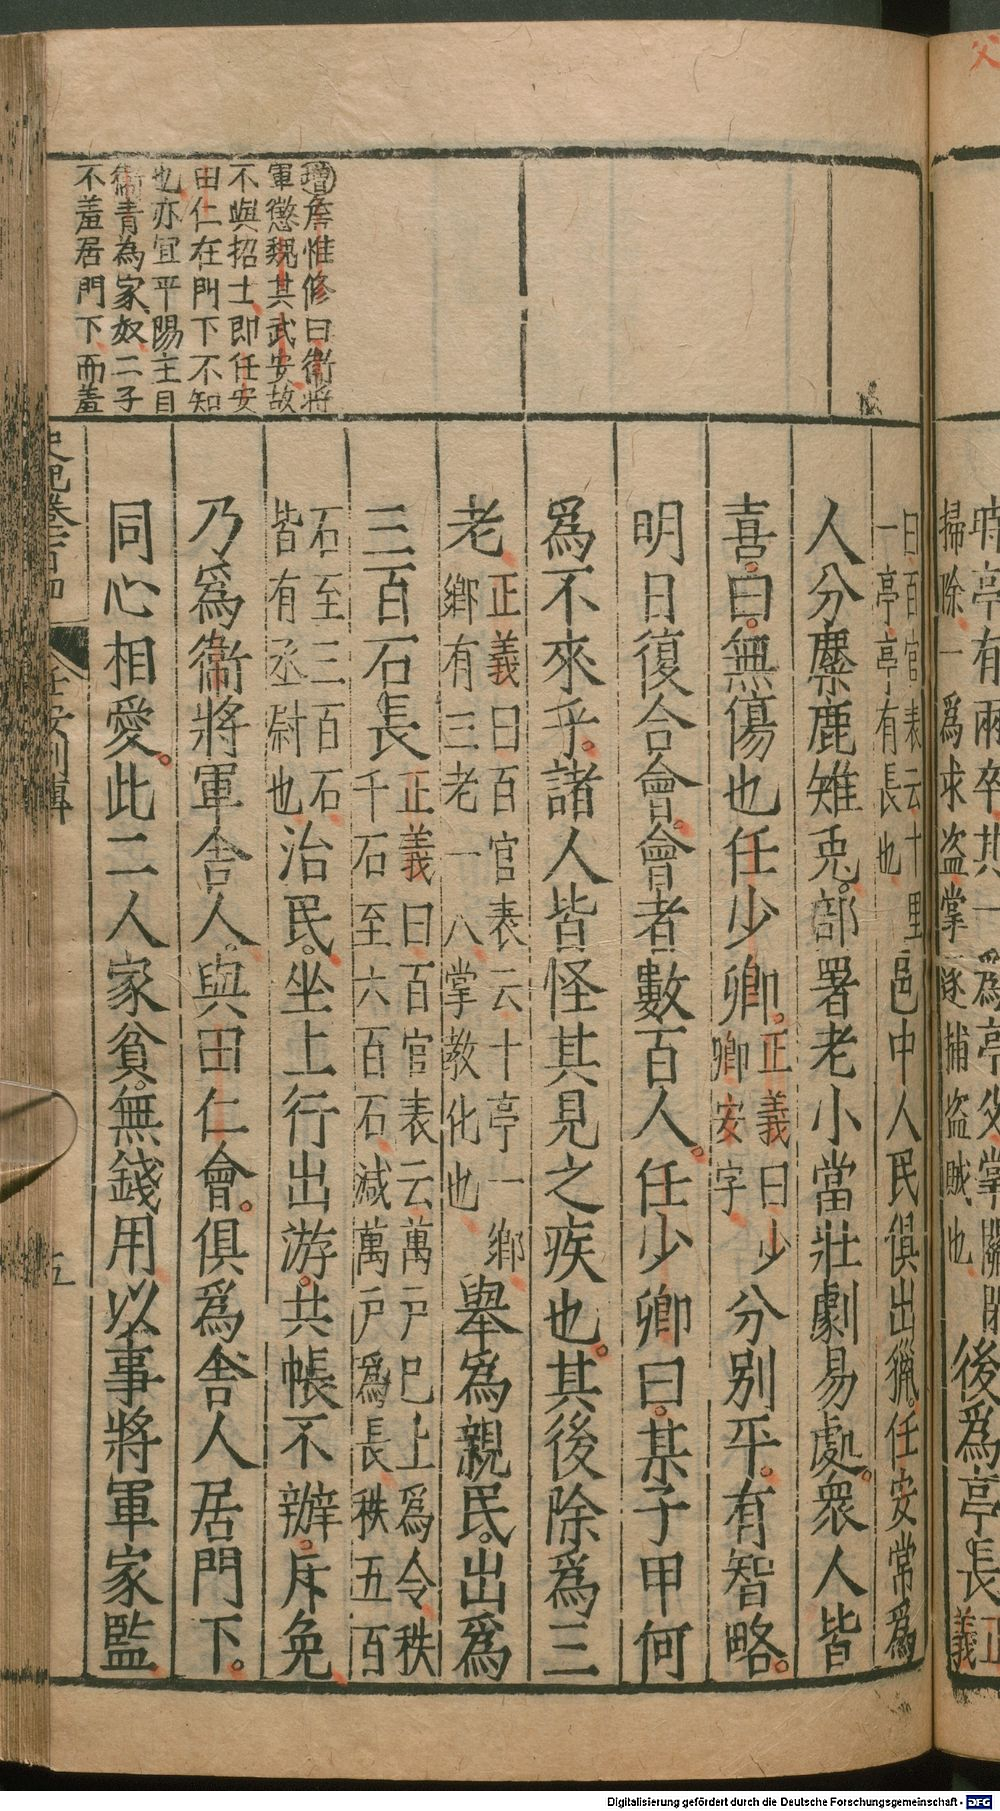 時亭有兩卒其一爲亭父掌關閉
掃除一爲求盗掌逐捕盗賊也
後爲亭長
正
義
曰百官表云十里
一亭亭有長也
邑中人民俱出獵任安常爲
人分麋鹿雉兎部署老小當壯劇易處衆人皆
喜曰無傷也任少卿
正義曰少
卿安字
分别平有智略
明日復合會會者數百人任少卿曰某子甲何
爲不來乎諸人皆怪其見之疾也其後除爲三
老
正義曰百官表云十亭一鄉
鄉有三老一人掌教化也
舉爲親民出爲
三百石長
正義曰百官表云萬戸已上爲令秩
千石至六百石减萬戸爲長秩五百
石至三百石
皆有丞尉也
治民坐上行出游共帳不辦斥免
乃爲衞將軍舍人與田仁會俱爲舍人居門下
同心相愛此二人家貧無錢用以事將軍家監
史記卷一百四
任安列傳
五
增詹惟修曰衛將
軍懲魏其武安故
不與招士即任安
田仁在門下不知
也亦宜平陽主目
衛青為家奴二子
不羞居門下而羞
Digitalisierung gefördert durch die Deutsche Forschungsgemeinschaft - DFG